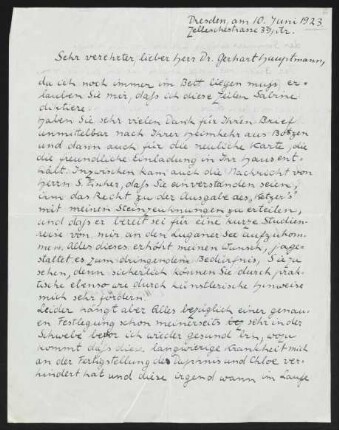 Dresden, am 10. Juni 1923
Zelleschestrasse 33/I.
Sehr verehrter, lieber Herr Dr. Gerhart Hauptmann,
da ich noch immer im Bett liegen muss, er-
lauben Sie mir, dass ich diese Zeilen Sabine
diktiere.
Haben Sie sehr vielen Dank für Ihren Brief
unmittelbar nach Ihrer Heimkehr aus Bozen
und dann auch für die neuliche Karte, die
die freundliche Einladung in Ihr Haus ent-
hält. Inzwischen kam auch die Nachricht von
Herrn S. Fischer, dass Sie einverstanden seien,
ihm das Recht zu der Ausgabe des
mit meinen Steinzeichnungen zu erteilen,
und dass er bereit sei für eine kurze Studien-
reise von mir an den Luganer See aufzukom-
men. Alles dieses erhöht meinen Wunsch, ja ge-
staltet es zum dringenden Bedürfnis, Sie zu
sehen, denn sicherlich können Sie durch prak-
tische ebenso wie durch künstlerische Hinweise
mich sehr fördern.
Leider hängt aber Alles bezüglich einer genau-
en Festlegung schon meinerseits sehr in der
Schwebe bevor ich wieder gesund bin, wozu
kommt dass diese langwierige Krankheit mich
an der Fertigstellung des Daphnis und Chloe ver-
hindert hat und diese irgend wann im Laufe